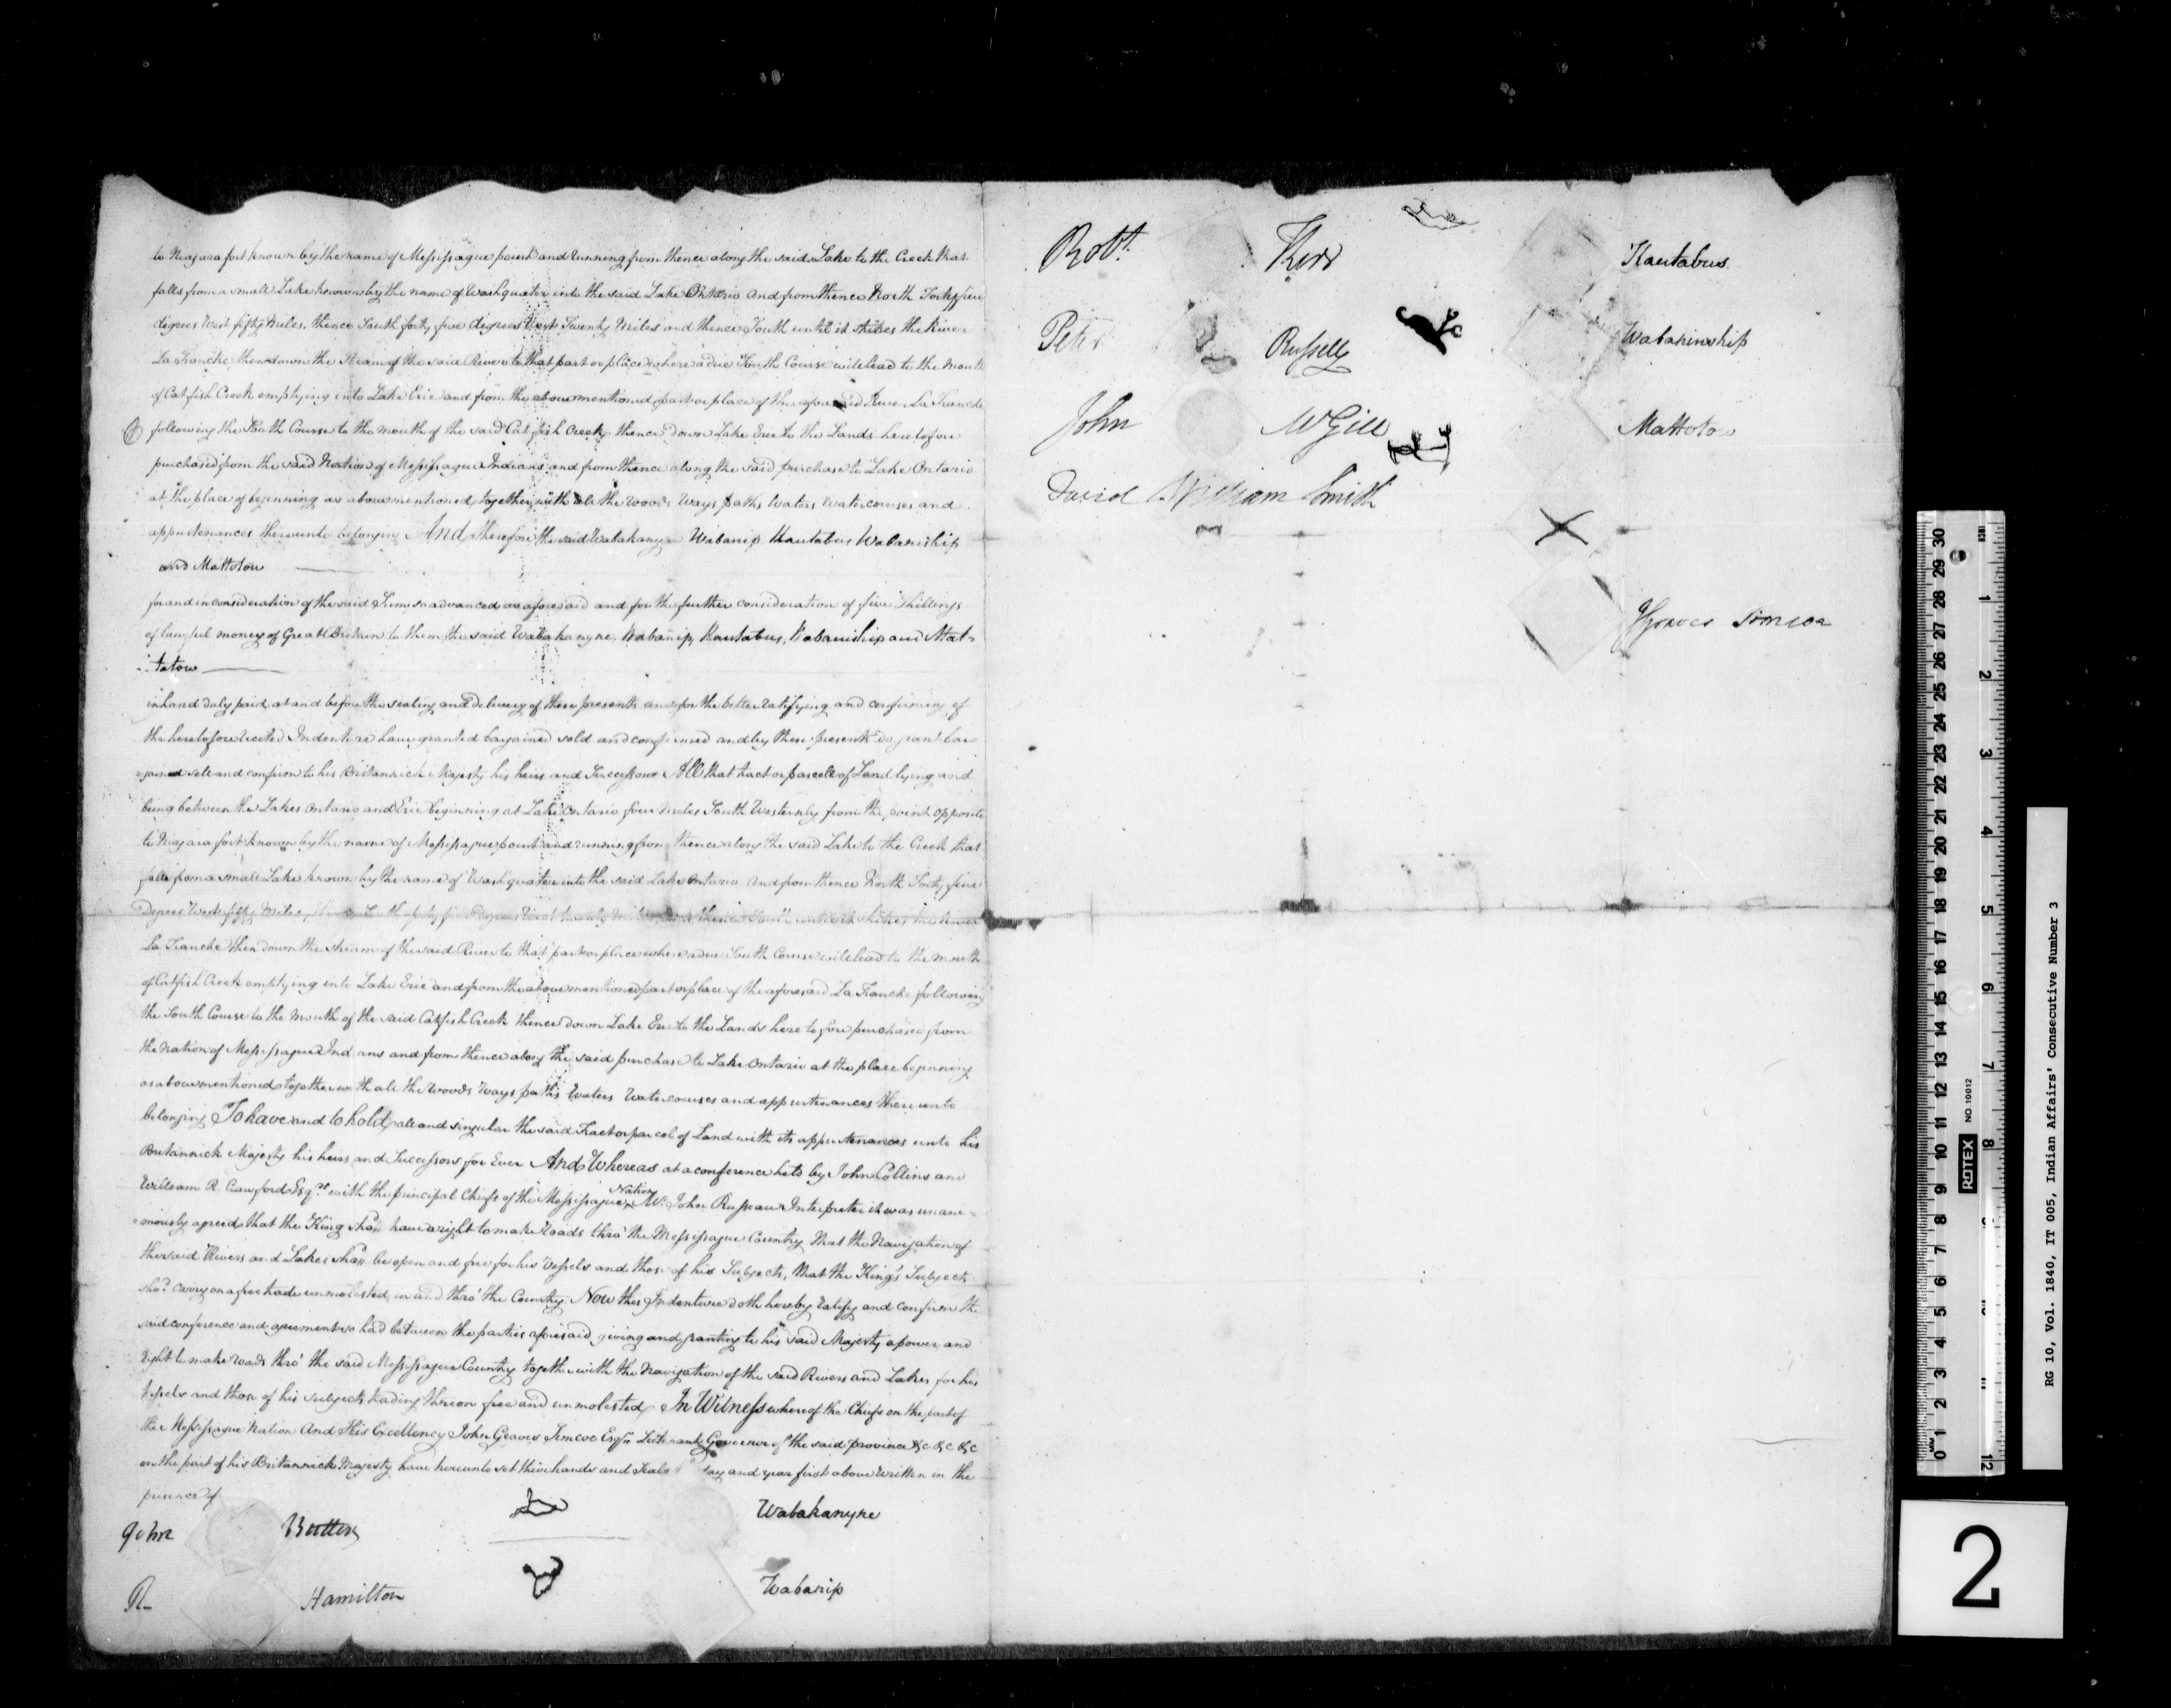 to Niagara fort known by the name of Messissague point and running from thence along the said Lake to the Creek that
falls from a small Lake known by the name of Washquater into the said Lake Ontario and from thence North Forty five
degrees West fifty Miles, thence South forty five degrees West Twenty Miles and thence South until it strikes the River
La Tranche, then down the Stream of the said River to that part or place where a due South Course will lead to the Mouth
of Catfish Creek emptying into Lake Erie and from the above mentioned part or place of the aforesaid River La Tranche
following the South Course to the mouth of the said Cat fish Creek, thence Down Lake Erie to the Lands heretofore
purchased from the said Nation of Messissague Indians and from thence along the said purchase to Lake Ontario
at the place of beginning as above mentioned together with all the Woods Ways paths Waters Watercourses and
appurtenances thereunto belonging And Therefore the said Wabakanyne Wabanip Kautabus Wabaniship
and Mattotow
for and in consideration of the said Sum so advanced as aforesaid and for the further consideration of five Shillings
of lawful money of Great Britain to them the said Wabakanyne, Wabanip, Kautabus, Wabaniship and Mat-
totow
in hand duly paid at and before the sealing and delivery of these presents and for the better ratifying and confirming of
the heretofore recited Indenture have granted bargained sold and confirmed and by these presents do grant bar-
=gained sell and confirm to his Britannick Majesty his heirs and Successors All that tract or parcell of Land lying and
being between the Lakes Ontario and Erie beginning at Lake Ontario four Miles South Westerly from the point opposite
to Niagara fort known by the name of Messissague point and running from thence along the said Lake to the Creek that
falls from a small Lake known by the name of Washquater into the said Lake Ontario and from thence North Forty five
Degrees West fifty Miles, thence South forty five Degrees West twenty Miles and thence South until it strikes the River
La Tranche then down the stream of the said River to that part or place where a due South Course will lead to the Mouth
of Catfish Creek emptying into Lake Erie and from the above mentioned part or place of the aforesaid La Tranche following
the South Course to the Mouth of the said Catfish Creek thence down Lake Erie to the Lands heretofore purchased from
the Nation of Messissague Indians and from thence along the said purchase to Lake Ontario at the place beginning
as above mentioned together with all the Woods Ways paths Waters Watercourses and appurtenances thereunto
belonging To have and to hold all and singular the said Tract or parcel of Land with its appurtenances unto his
Britannick Majesty his heirs and Successors for Ever And Whereas at a conference held by John Collins and
William R. Crawford Esqrs with the principal Chiefs of the Messissague Nation Mr John Russeau Interpreter it was unani=
=mously agreed that the King shod have a right to make Roads thro' the Messissague Country That the Navigation of
the said Rivers and Lakes shod be open and free for his Vessels and those of his Subjects, that the King's Subjects
shod carry on a free trade unmolested, in and thro' the Country. Now this Indenture doth hereby ratify and confirm the
said conference and agreement so had between the parties aforesaid giving and granting to his said Majesty a power and
right to make roads thro' the said Messissague Country together with the Navigation of the said Rivers and Lakes for his
Vessels and those of his subjects trading thereon free and unmolested. In Witness whereof the Chiefs on the part of
the Messissague Nation And His Excellency John Graves Simcoe Esqr. Lieutenant Governor of the said province &c &c &c
on the part of his Britannick Majesty have hereunto set their hands and Seals day and year first above Written in the
presence of
John Butler Wabakanyne
R Hamilton Wabanip
Robt. Kerr Kautabus
Peter Russell Wabaniship
John McGill Mattotow
David William Smith
J Graves Simcoe
RG 10, Vol. 1840, IT 005, Indian Affairs' Consecutive Number 3
ROTEX NO. 10012
2